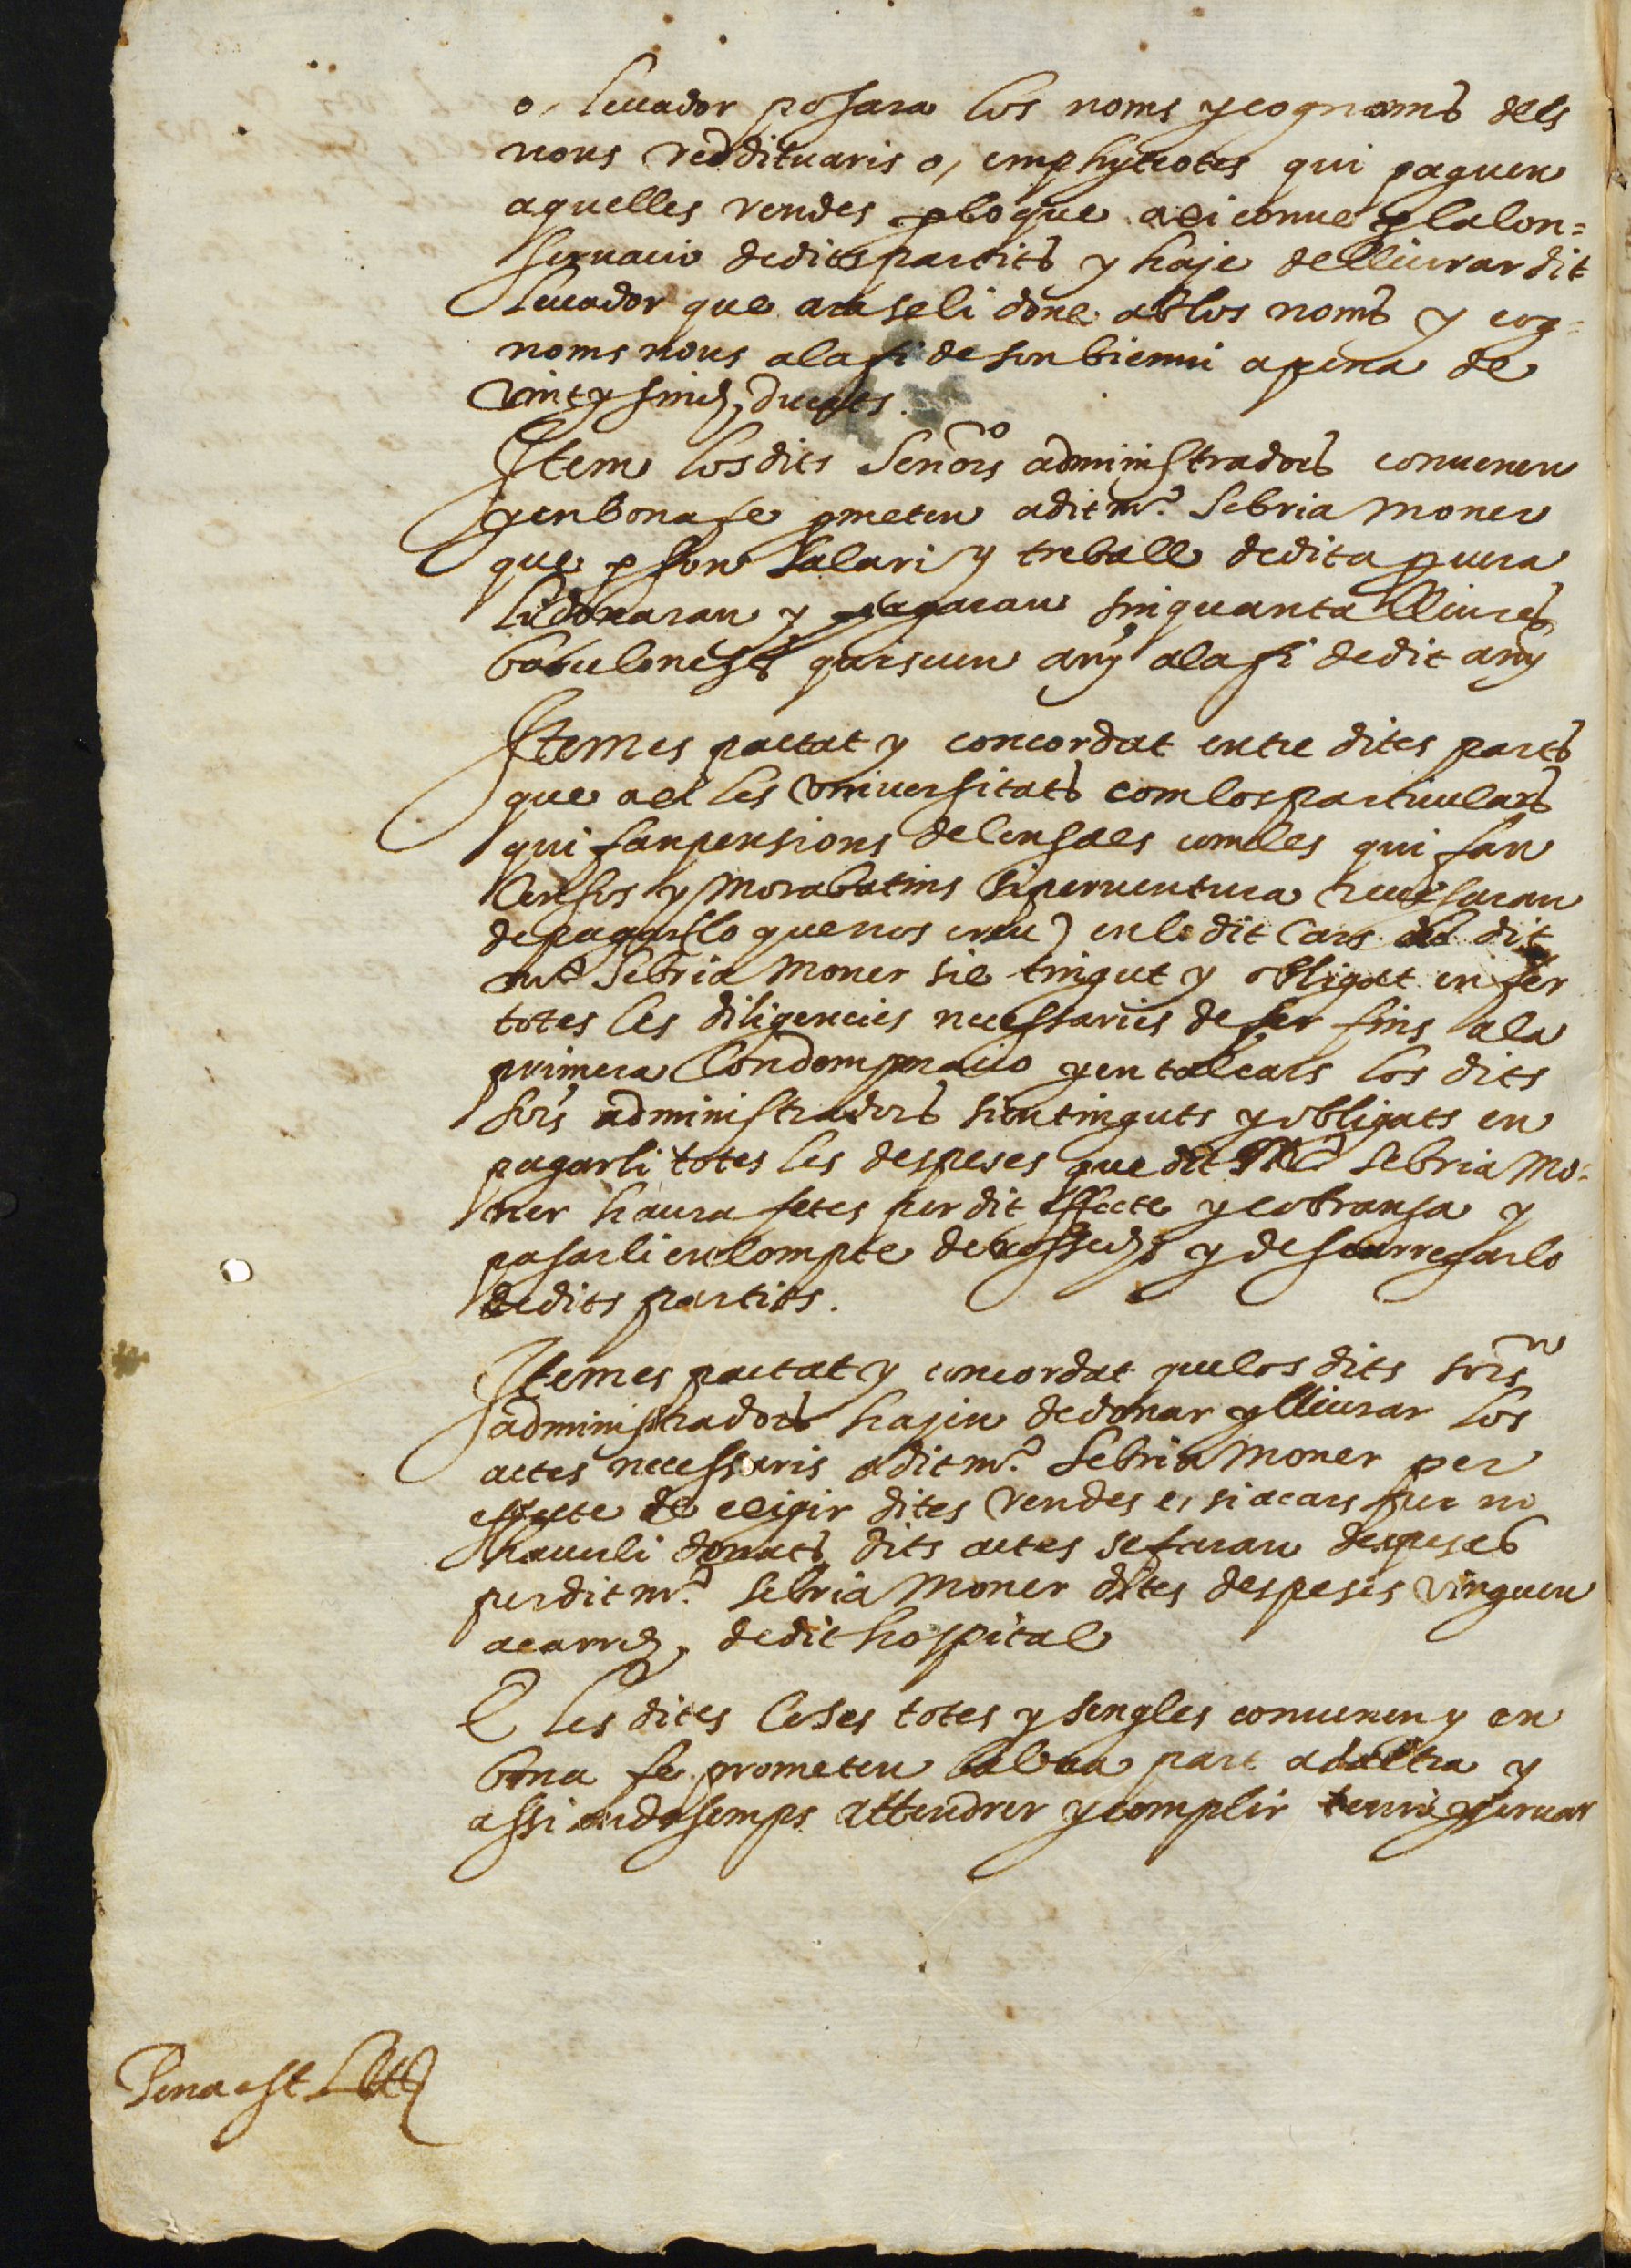 o, leuador posara los noms y cognoms dels
nous reddituaris o, emphyteotes qui paguen
aquelles rendes p lo que axi conue p la con=
seruacio de dits partits y haje de lliurar dit
leuador que ara se li done ab los noms y cog=
noms nous a la fi de son bienni a pena de
vint y sinch ducats.
Item los dits Señors administradors conuenen
y en bona fe pmeten a dit mº. Sebria Moner
que p son salari y treball de dita pcura
li donaran y pagaran sinquanta lliures
barceloneses quiscun any a la fi de dit any
Item es pactat y concordat entre dites parts
que axi les vniuersitats com los particulars
qui fan pensions de censals com les qui fan
Censos y Morabatins si peruentura recusaran
de pagar (lo que nos creu) en lo dit Cars dit
mº Sebria Moner sie tingut y obligat en fer
totes les diligencies necessaries de fer fins a la
primera Condempnacio y en tal cars los dits
sors administradors sien tinguts y obligats en
pagarli totes les despeses que dit Mº Sebria Mo=
ner haura fetes per dit effecte y cobransa y
pasarli en Compte y descarregarlo
de dits partits.
Item es pactat y concordat que los dits sors
administradors hajin de donar y lliurar los
actes necessaris a dit mº. Sebria Moner per
effecte de exigir dites rendes e, si a cars per no
hauerli donats dits actes se faran despeses
per dit mº. Sebria Moner dites despeses vinguen
a carrech de dit hospital
E les dites Coses totes y sengles conuenen y en
bona fe prometen la vna part a la altra y
assi endosemps attendrer y complir tenir y seruar
Pena est